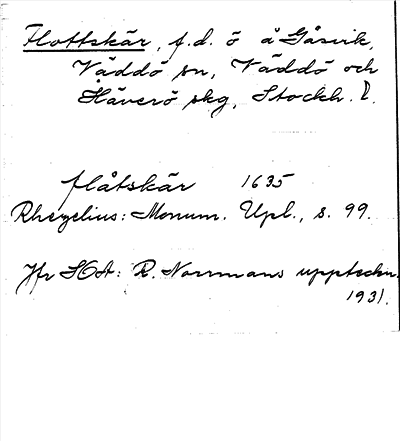 Flottskär, f.d. ö å Gåsvik,
Väddö sn, Väddö och
Häverö skg, Stockh. l.
flåtskär 1635
Rhezelius: Monum. Upl., s. 99.
Jfr SOA: R. Norrmans uppteckn.
1931.